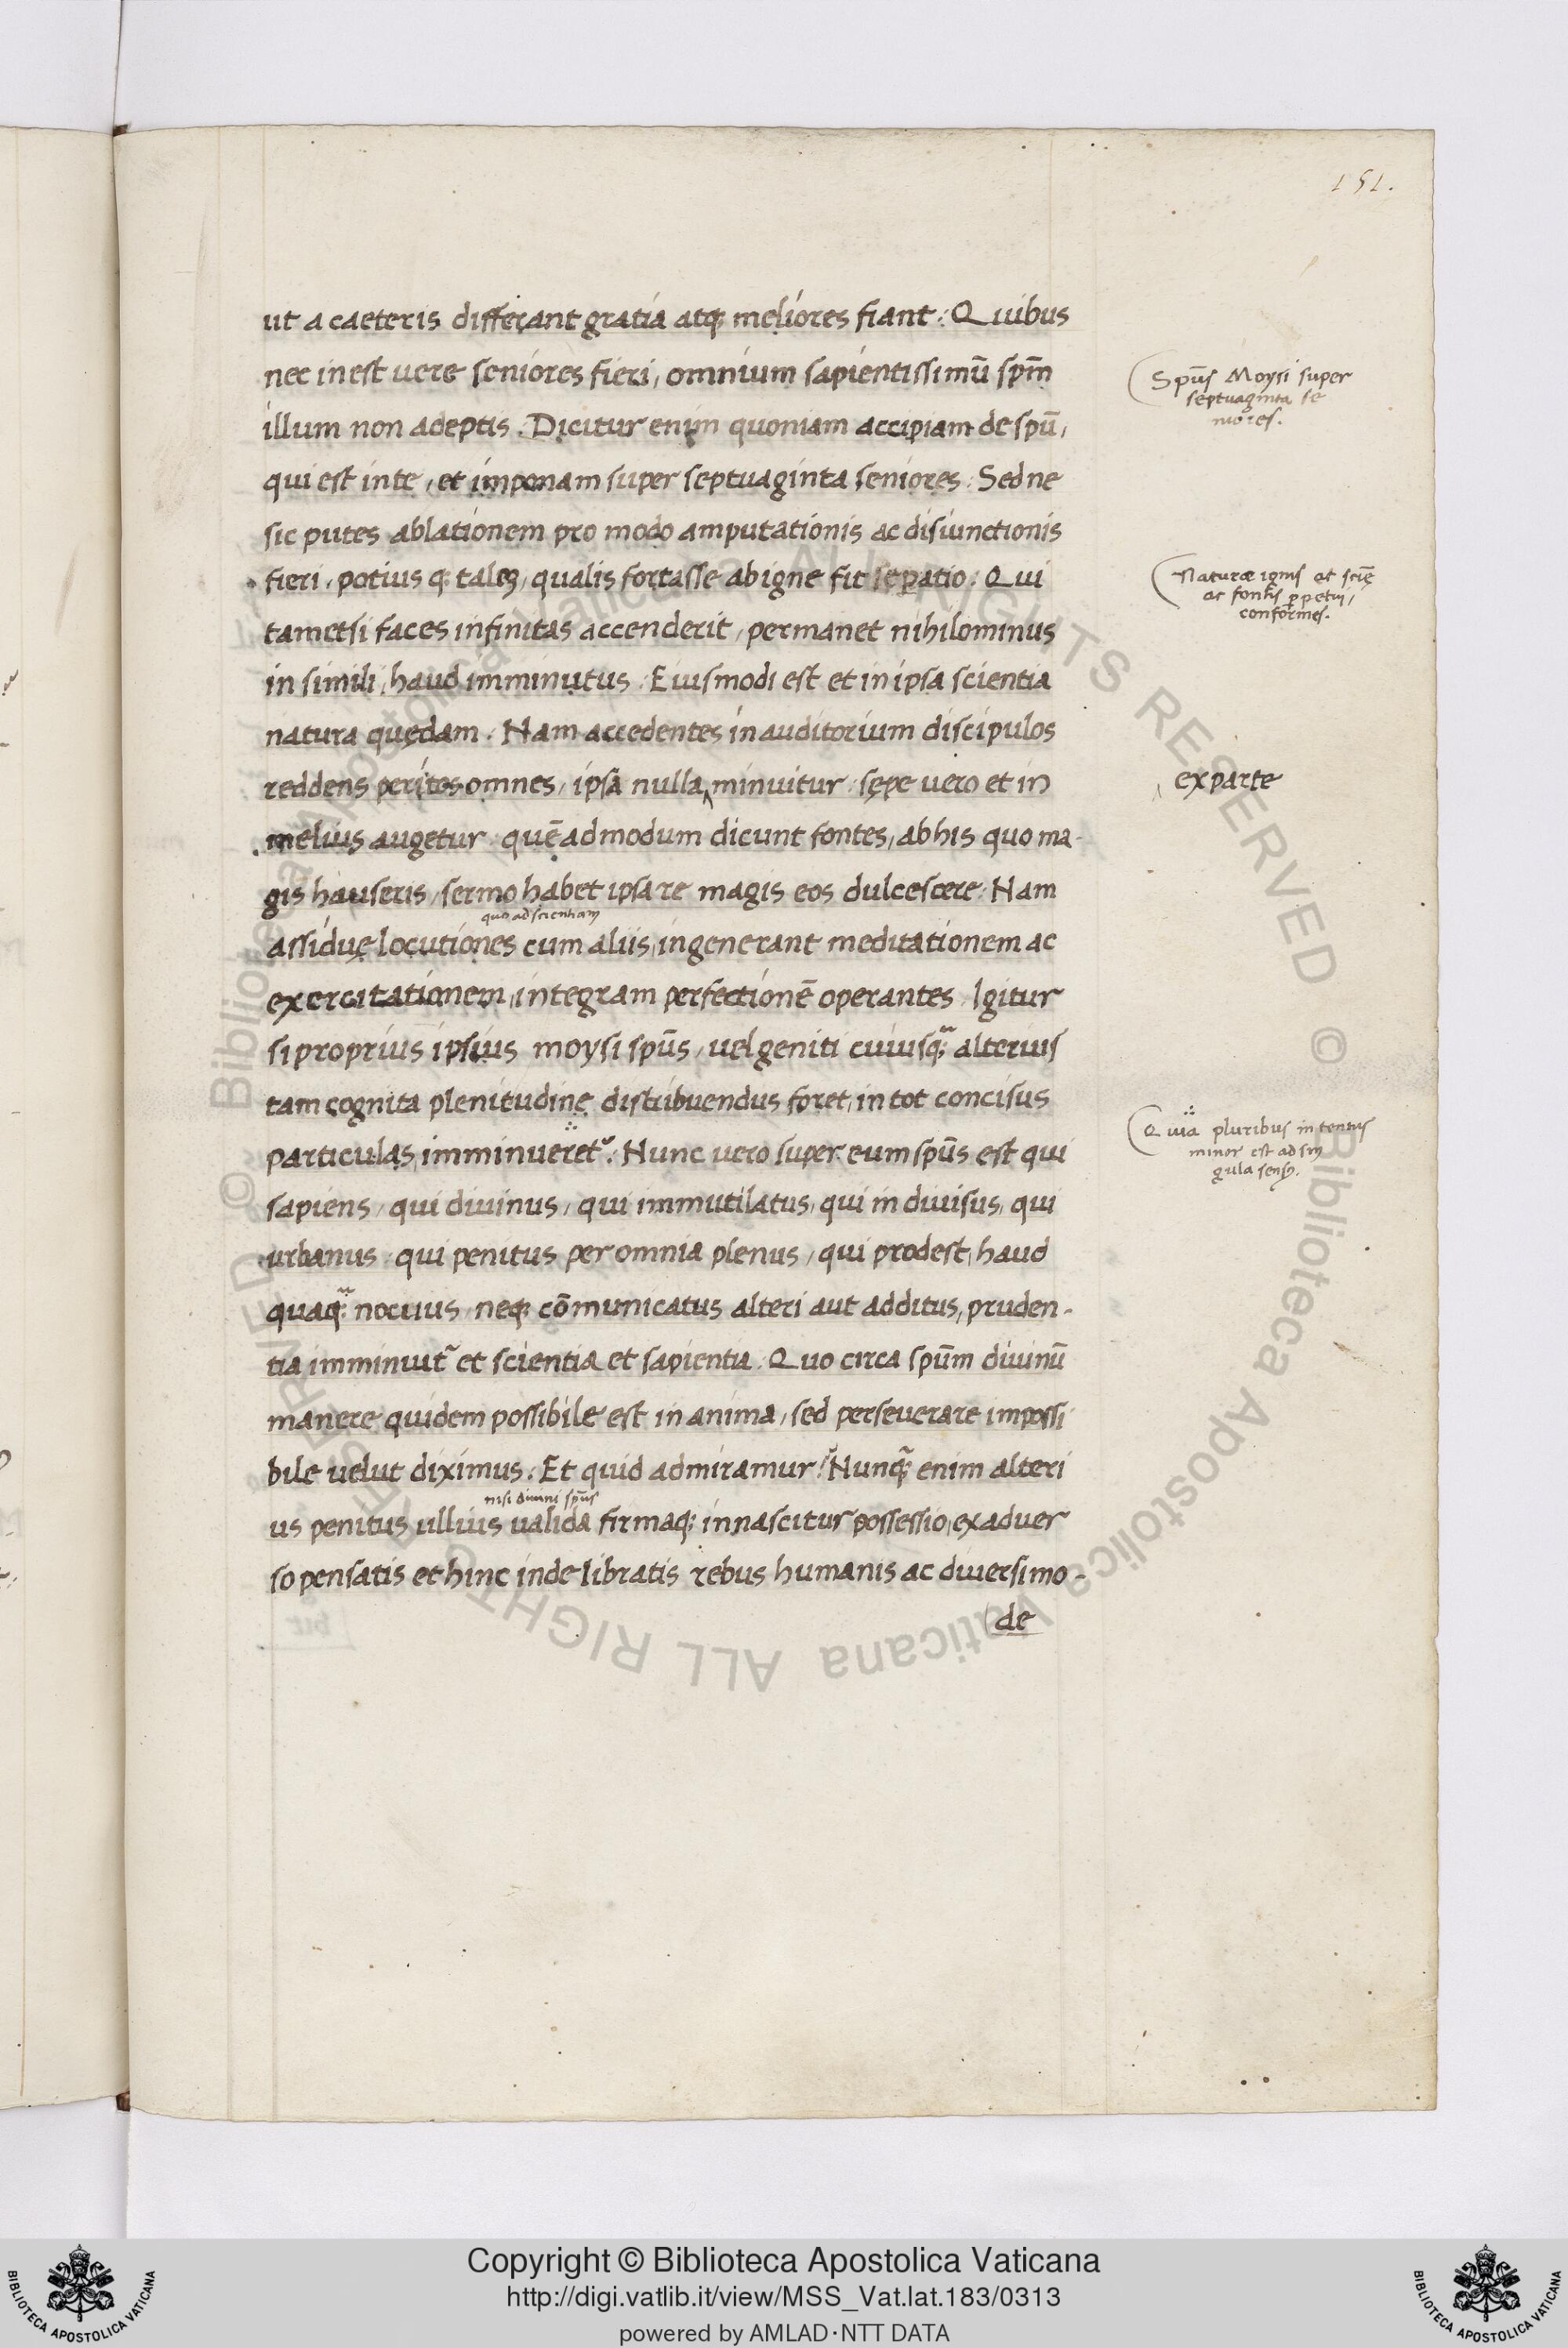 151.
ut a caeteris differant gratia atq; meliores fiant. Quibus
nec inest uere seniores fieri, omnium sapientissimū spm̄
illum non adeptis. Dicitur enim quoniam accipiam de spū,
qui est in te, et imponam super septuaginta seniores. Sed ne
sic putes ablationem pro modo amputationis ac disiunctionis
fieri, potius q; talem, qualis fortasse ab igne fit sepatio. Qui
tametsi faces infinitas accenderit, permanet nihilominus
in simili, haud imminutus. Eiusmodi est et in ipsa scientia
natura quędam. Nam accedentes in auditorium discipulos
reddens peritos omnes, ipsa nulla minuitur. sępe uero et in
melius augetur. quēadmodum dicunt fontes, ab his quo ma-
gis hauseris, sermo habet ipsa re magis eos dulcescere. Nam
quo ad scientiam
assiduę locutiones cum aliis, ingenerant meditationem ac
exercitationem, integram perfectionē operantes. Igitur
si proprius ipsius moysi spūs, uel geniti cuiusq; alterius
tam cognita plenitudine distribuendus foret, in tot concisus
particulas, imminueret. Nunc uero super eum spūs est qui
sapiens, qui diuinus, qui immutilatus, qui indiuisus, qui
urbanus, qui penitus per omnia plenus, qui prodest, haud
quaq; nocuus, neq; cōmunicatus alteri aut additus, pruden-
tia imminuit et scientia et sapientia. Quo circa spūm diuinū
manere quidem possibile est in anima, sed perseuerare impossi
bile uelut diximus. Et quid admiramur? Nunq; enim alteri
nisi diuini spūs
us penitus ullius ualida firmaq; innascitur possessio, ex aduer
so pensatis et hinc inde libratis rebus humanis ac diuersimo-
de
Spūs Moysi super
septuaginta se
niores.
Naturæ ignis et sciē
ac fontis ppetui,
conformes.
ex parte
Quia pluribus intentus
minor est ad sin
gula sensus.
Copyright © Biblioteca Apostolica Vaticana
http://digi.vatlib.it/view/MSS_Vat.lat.183/0313
powered by AMLAD·NTT DATA
BIBLIOTECA APOSTOLICA VATICANA
BIBLIOTECA APOSTOLICA VATICANA
© Biblioteca Apostolica Vaticana ALL RIGHTS RESERVED © Biblioteca Apostolica Vaticana ALL RIGHTS RESERVED